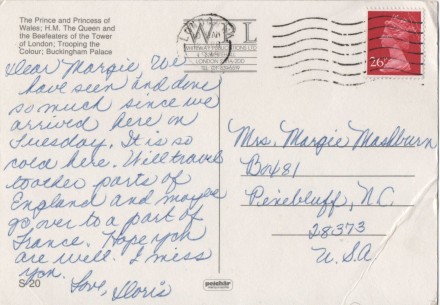 The Prince and Princess of
Wales; H.M. The Queen and
the Beefeaters of the Tower
of London; Trooping the
Colour; Buckingham Palace
WPL
26P
Dear Margie We
have seen and done
so much since we
arrived here on
Tuesday. It is so
cold here. Will travel
to other parts of
England and maybe
go over to a part of
France. Hope you
are well. I miss
you.
Love, Doris
Mrs. Margie Mashburn
Box 481
Pinebluff, N.C.
28373
U.S.A.
S-20